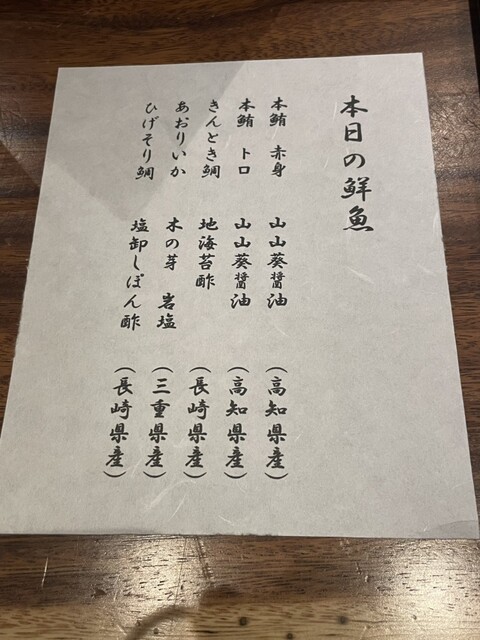 本日の鮮魚
本鮪 赤身 山山葵醤油 (高知県産)
本鮪 トロ 山山葵醤油 (高知県産)
きんとき鯛 地海苔酢 (長崎県産)
あおりいか 木の芽 岩塩 (三重県産)
ひげそり鯛 塩卸しぽん酢 (長崎県産)